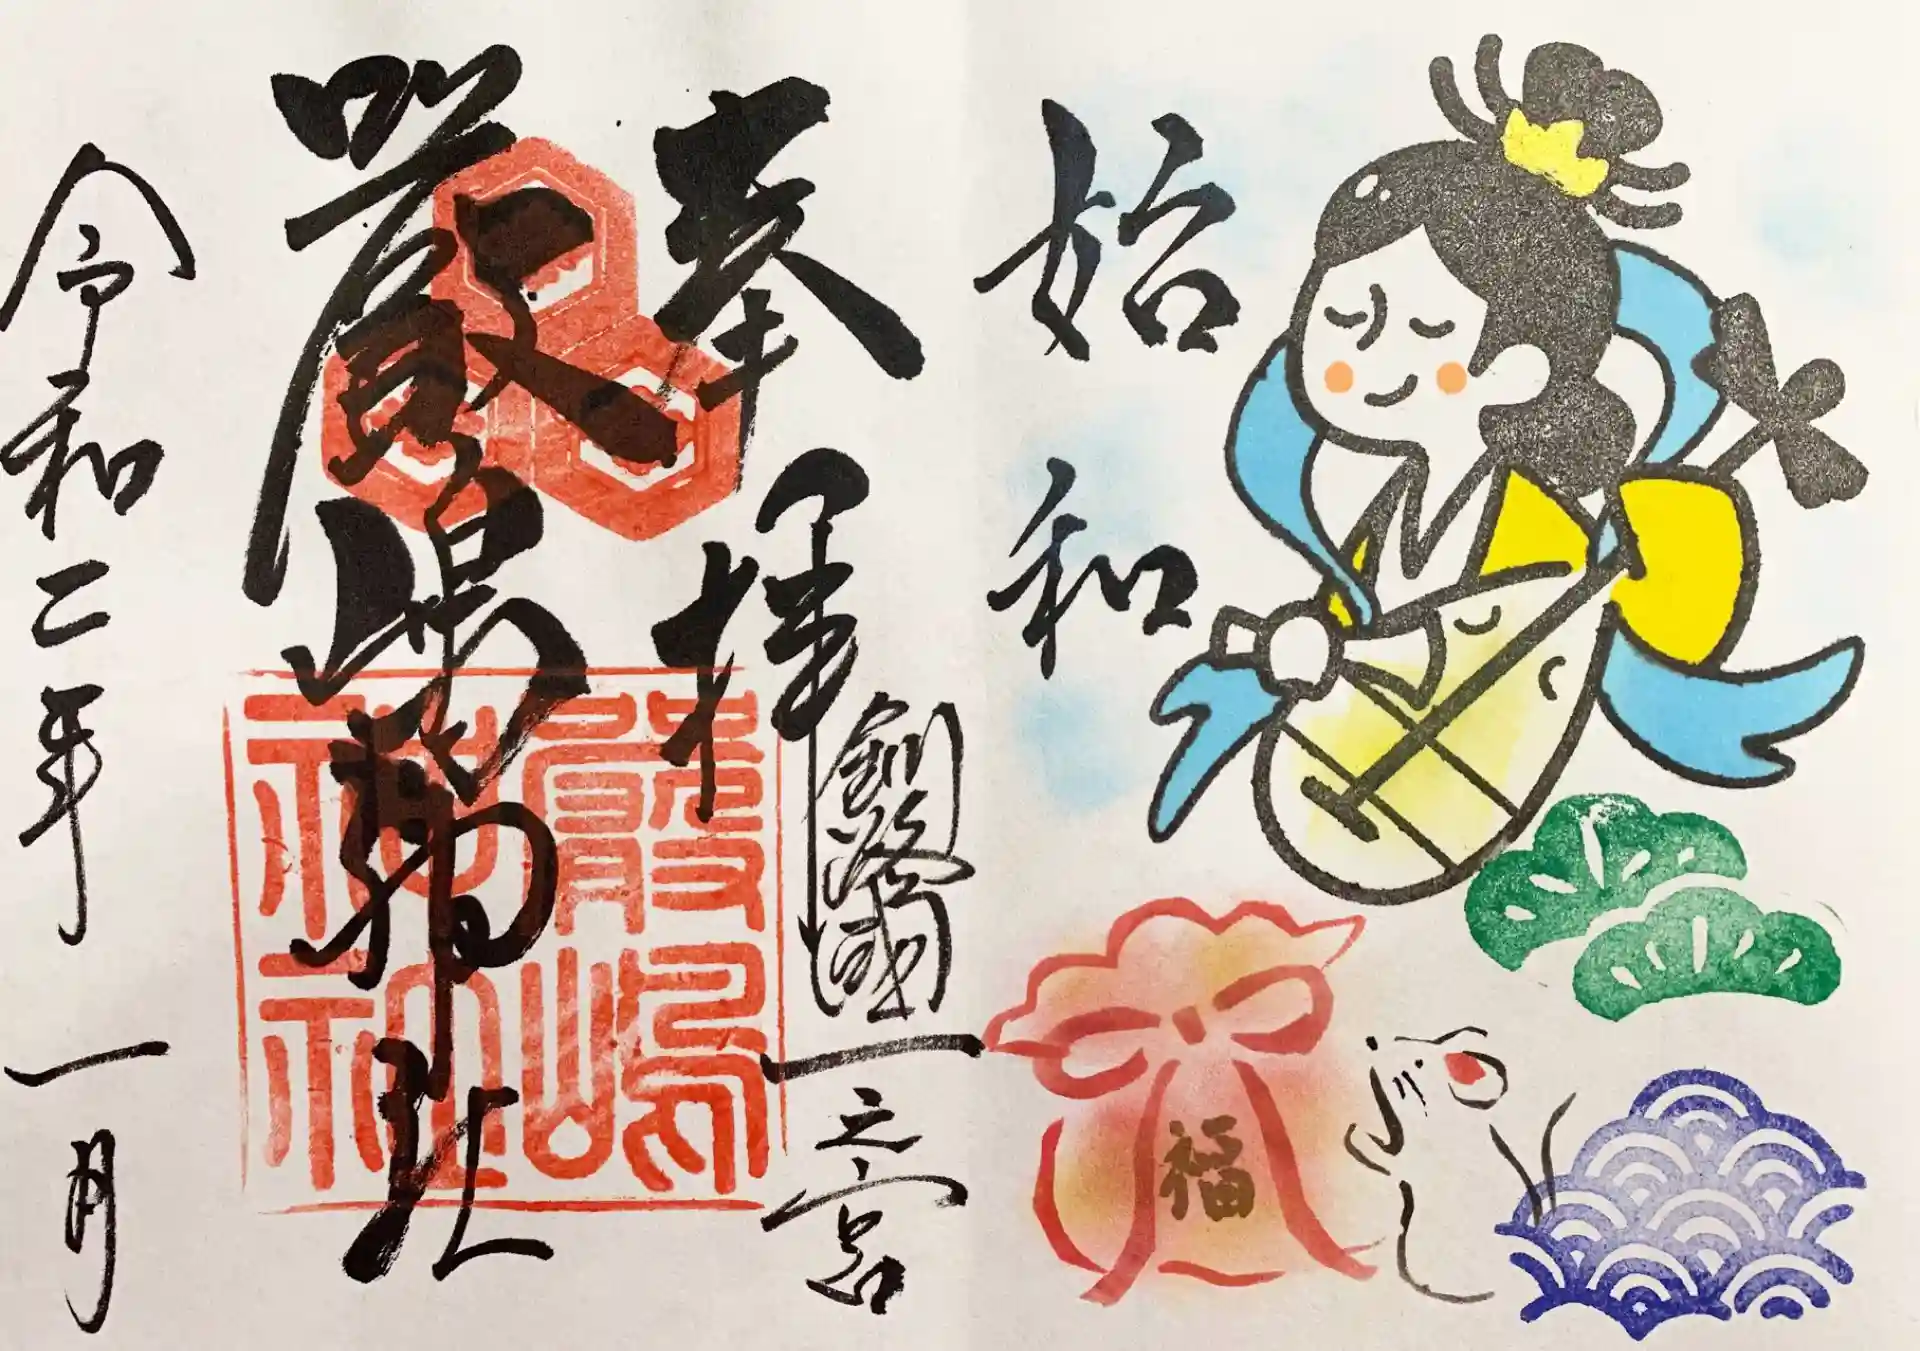 始和
福
奉拝
釧路國一之宮
厳嶋神社
嚴嶋神社
令和二年一月